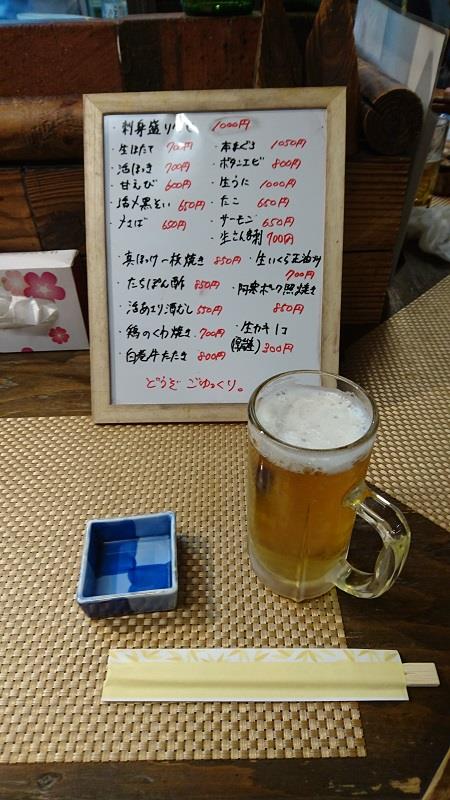 ・刺身盛り 1000円
・生ほたて 700円 ・本まぐろ 1050円
・活ほっき 700円 ・ボタンエビ 800円
・甘えび 600円 ・生うに 1000円
・活〆黒そい 650円 ・たこ 650円
・〆さば 650円 ・サーモン 650円
・生さんま刺 700円
・真ほっけ一枚焼き 850円 ・生いくら正油
700円
・たちぽん酢 850円 ・阿寒ポーク照り焼き
850円
・活あさり酒むし 550円
・鶏のくわ焼き 700円 ・生カキ 1コ
・白老牛たたき 800円 300円
どうぞ ごゆっくり。